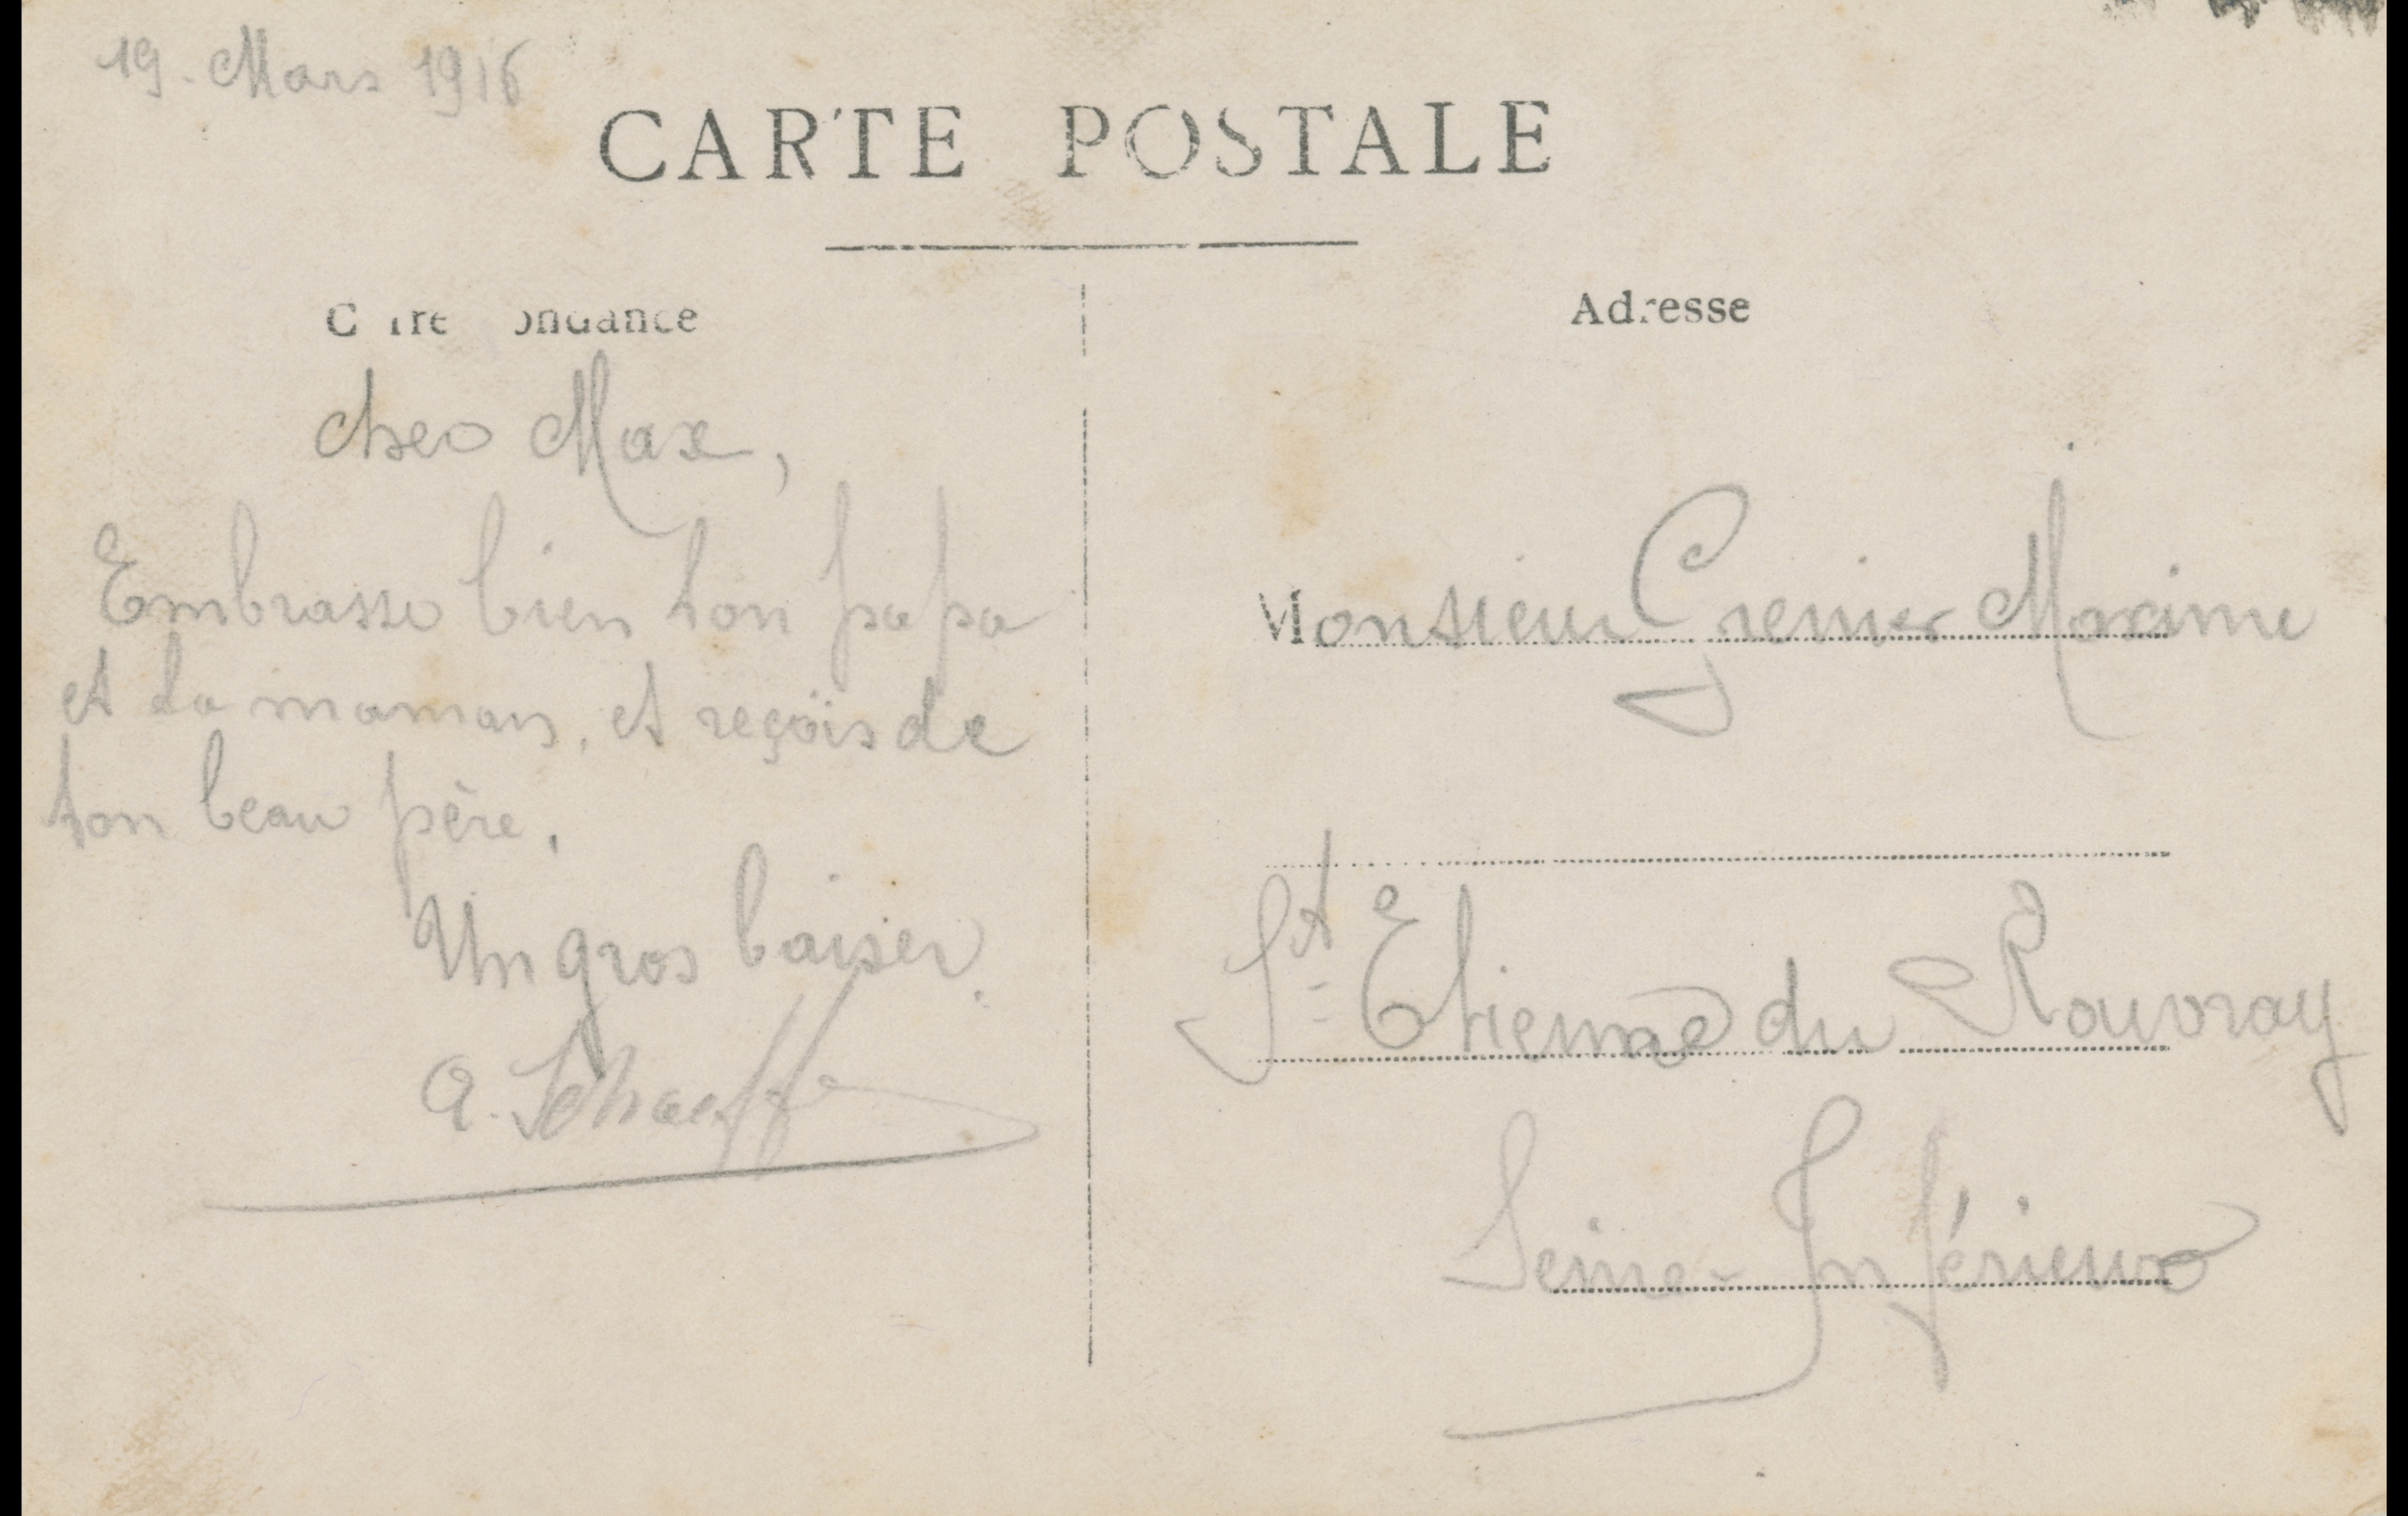 19. Mars 1916
CARTE POSTALE
Correspondance
Adresse
cher Max,
Embrasse bien ton papa
et ta maman, et reçois de
ton beau père,
Un gros baiser.
Monsieur Grenier Maxime
St Etienne du Rouvray
Seine Inférieure